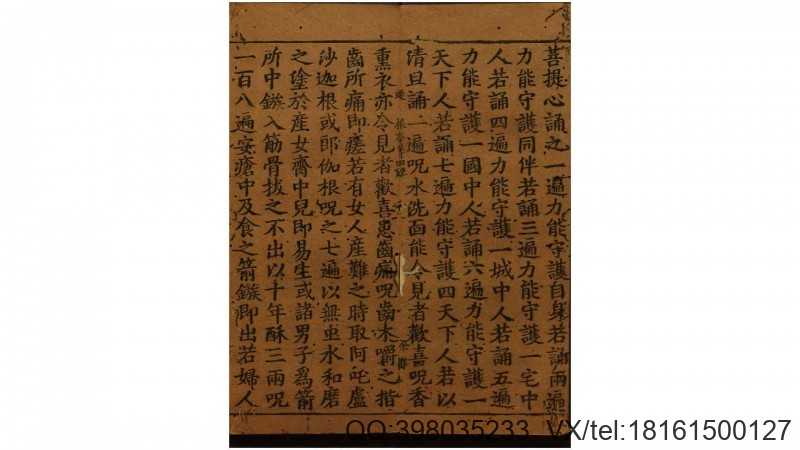 菩提心誦之一遍力能守護自身若誦兩遍
力能守護同伴若誦三遍力能守護一宅中
人若誦四遍力能守護一城中人若誦五遍
力能守護一國中人若誦六遍力能守護一
天下人若誦七遍力能守護四天下人若以
清旦誦一遍呪水洗面能令見者歡喜呪香
熏衣亦令見者歡喜患齒痛呪齒木嚼之揩
齒所痛即瘥若有女人產難之時取阿吒盧
沙迦根或郎伽根呪之七遍以無虫水和磨
之塗於產女齊中兒即易生或諸男子爲箭
所中鏃入筋骨拔之不出以十年酥三兩呪
一百八遍安瘡中及食之箭鏃即出若婦人
QQ:398035233 VX/tel:18161500127